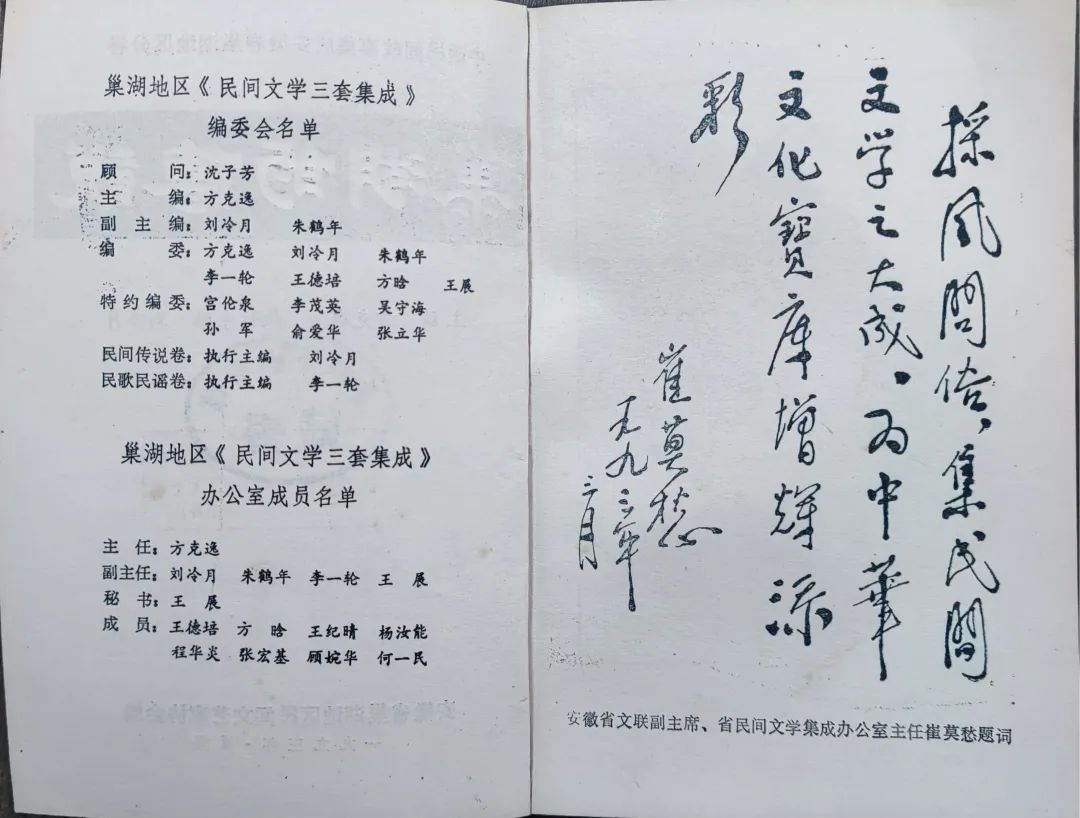 巢湖地区《民间文学三套集成》
编委会名单
顾问：沈子芳
主编：方克逸
副主编：刘冷月 朱鹤年
编委：方克逸 刘冷月 朱鹤年
李一轮 王德培 方晗 王展
特约编委：宫伦泉 李茂英 吴守海
孙军 俞爱华 张立华
民间传说卷：执行主编 刘冷月
民歌民谣卷：执行主编 李一轮
巢湖地区《民间文学三套集成》
办公室成员名单
主任：方克逸
副主任：刘冷月 朱鹤年 李一轮 王展
秘书：王展
成员：王德培 方晗 王纪晴 杨汝能
程华炎 张宏基 顾婉华 何一民
採风问俗、集民间
文学之大成、为中华
文化寳库增辉添
彩
崔莫愁
一九九三年
三月
安徽省文联副主席、省民间文学集成办公室主任崔莫愁题词